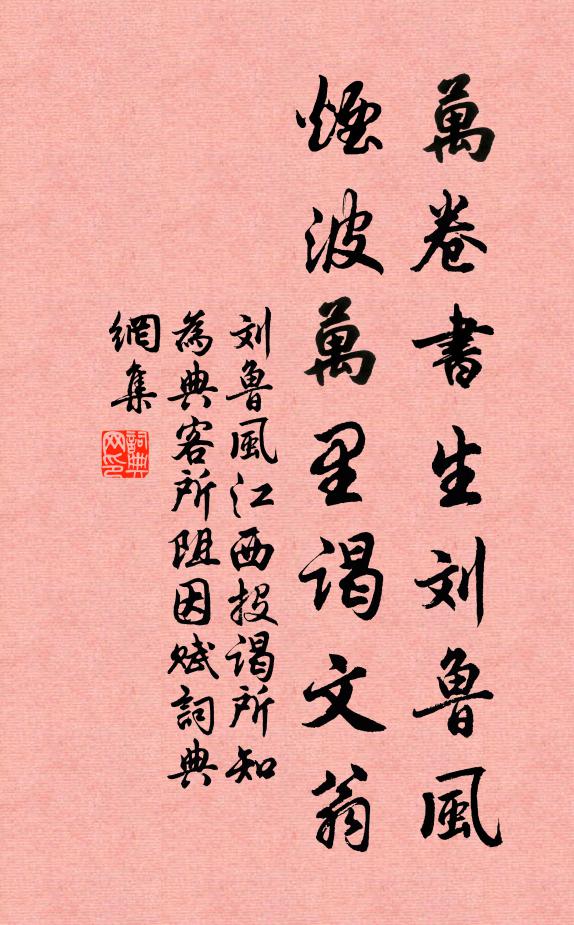 萬卷書生刘魯風
煙波萬里謁文翁
刘魯風江西投謁所知
為典客所阻因赋詞典
網集
詞典網印